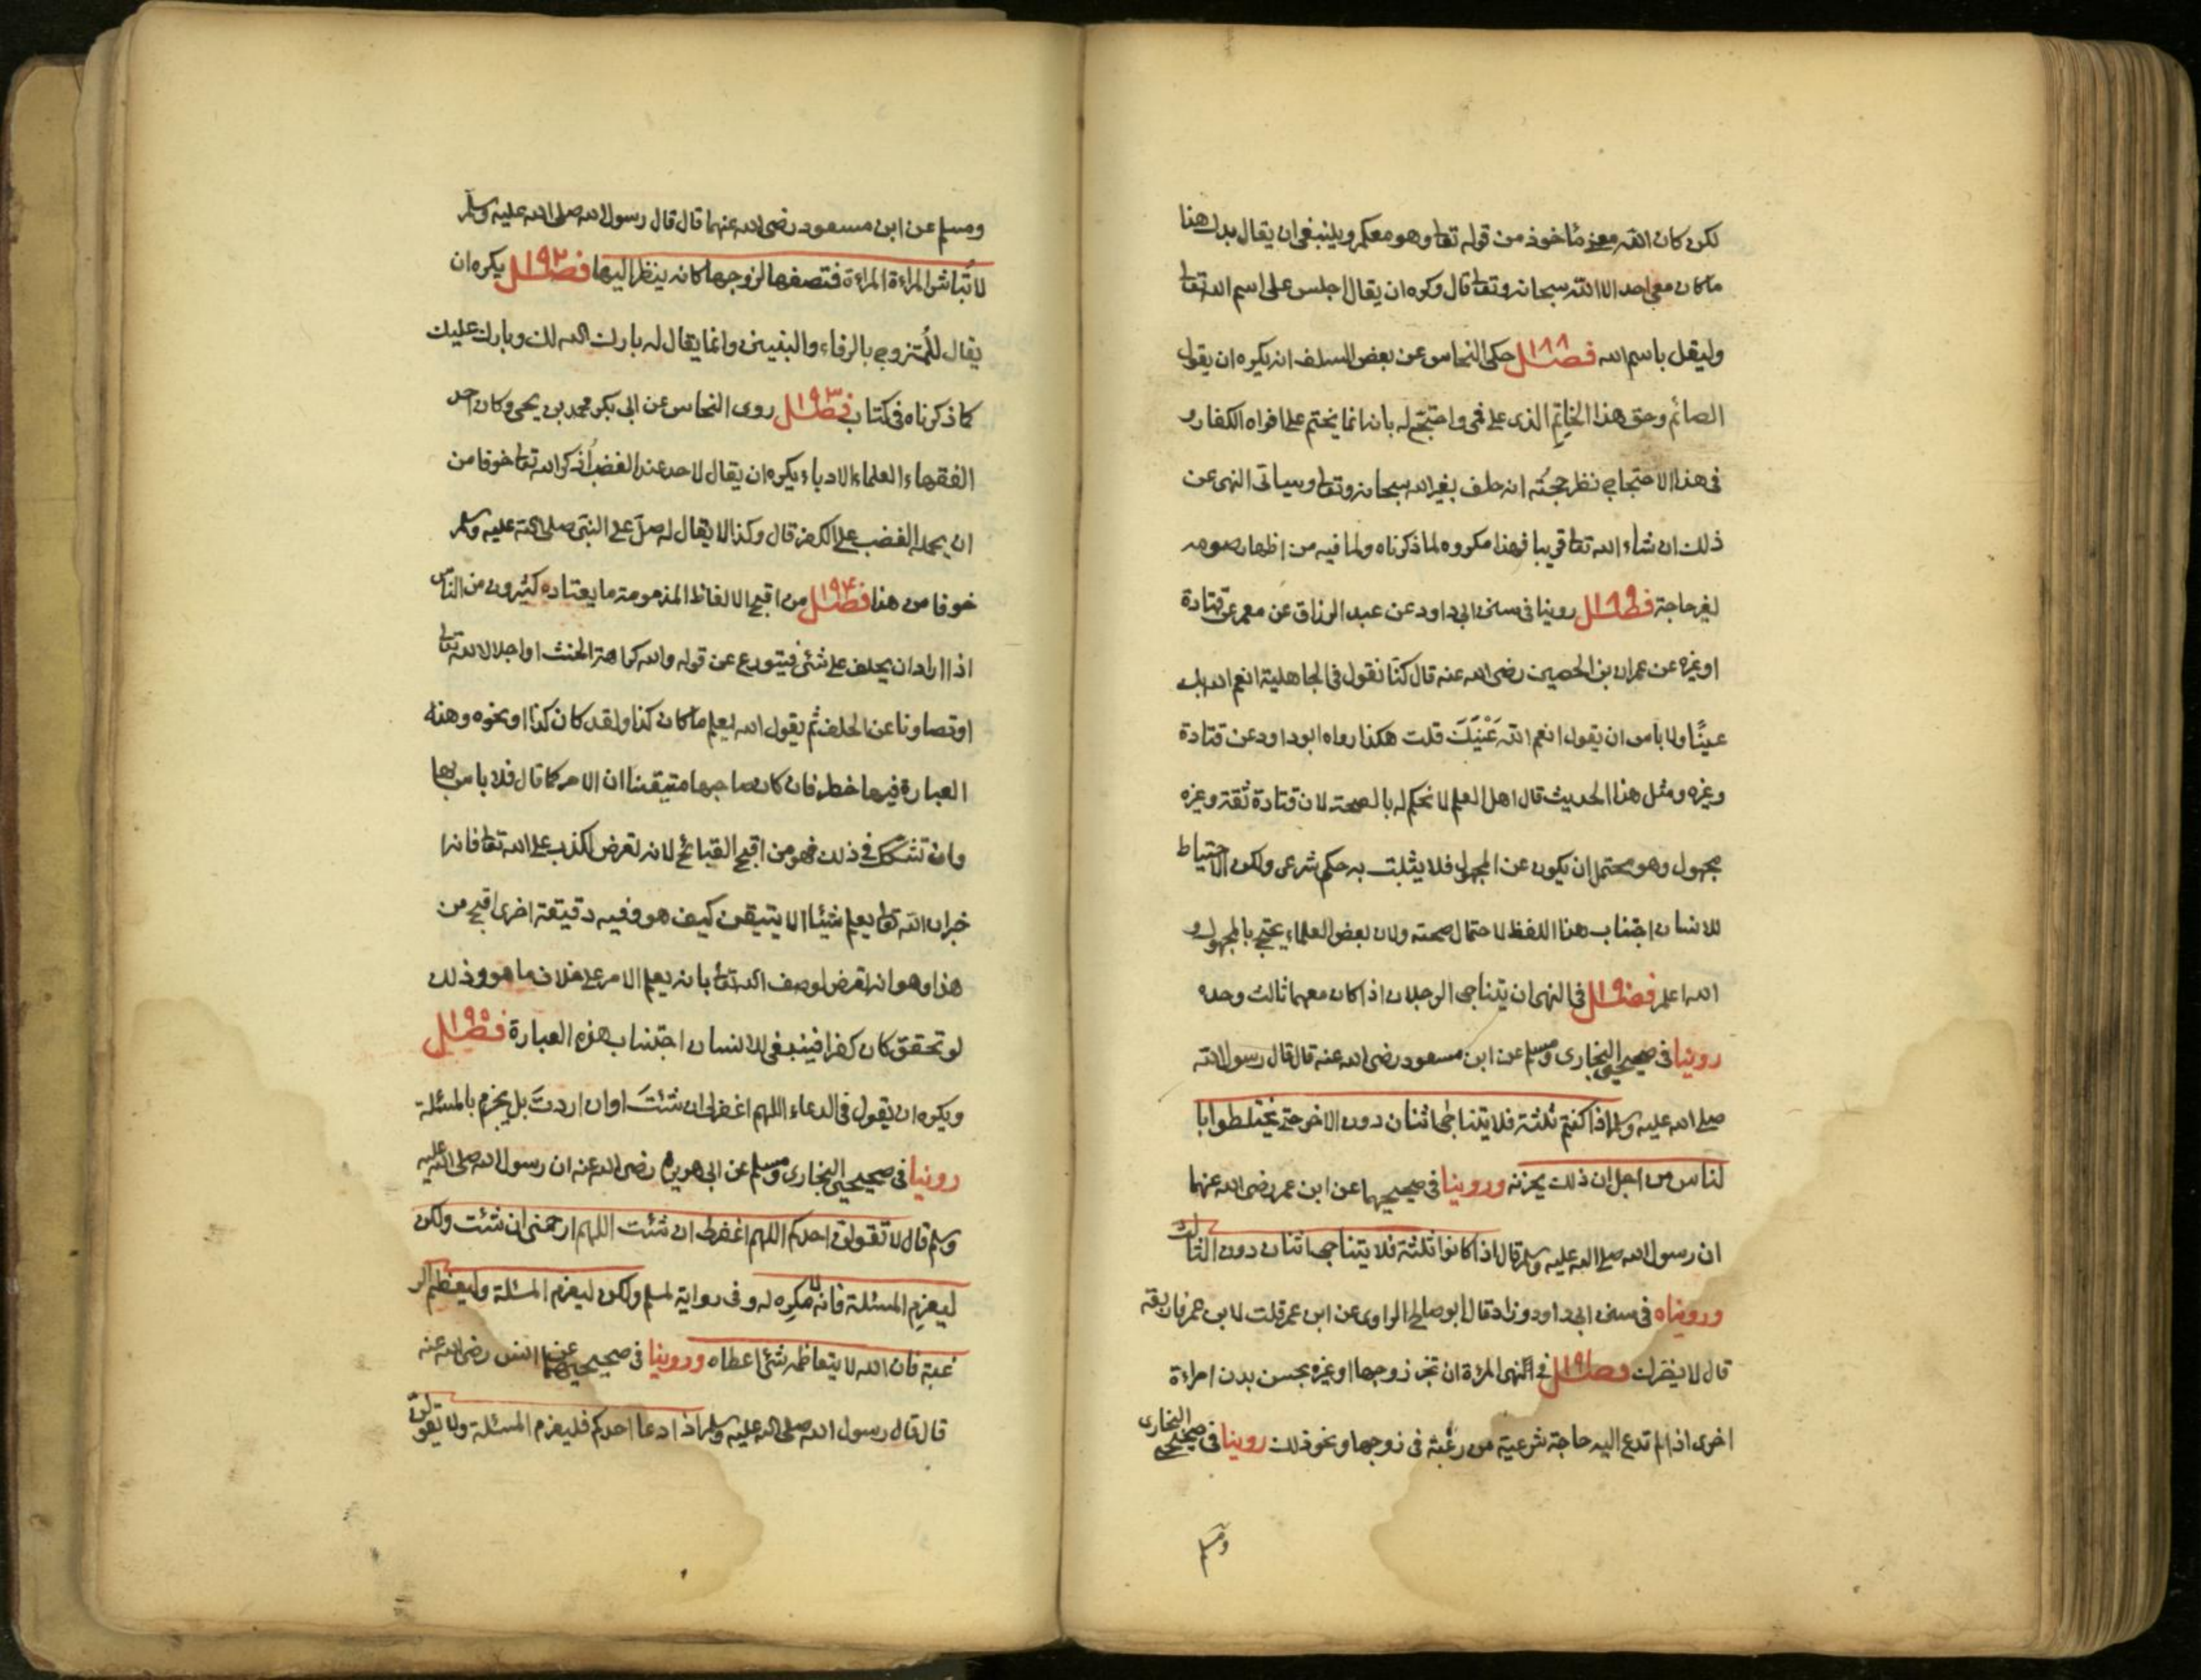 لكن كان الله معز مأخوذ من قوله تعا وهو معكم وينبغى ان يقال بدل هذا
ما كان معى احد الا الله سبحانه وتعا قال وكره ان يقال اجلس على اسم الله تعا
وليقل باسم الله فصل ١٨٨ حكى النحاس عن بعض السلف انه يكره ان يقول
الصائم وحق هذا الخاتم الذى على فمى واحتج له بانه انما يختم على افواه الكفار و
فى هذا الاحتجاج نظر حجته انه حلف بغير الله سبحانه وتعا وسياتى النهى عن
ذلك ان شاء الله تعا قريبا فهذا مكروه لما ذكرناه ولما فيه من اظهار صومه
لغير حاجة فصل ١٨٩ روينا فى سنن ابى داود عن عبد الرزاق عن معمر عن قتادة
او غيره عن عمران بن الحصين رضى الله عنه قال كنا نقول فى الجاهلية انعم الله بك
عينًا ولا باس ان يقول انعم الله عَيْنَيكَ قلت هكذا رواه ابو داود عن قتادة
وغيره ومثل هذا الحديث قال اهل العلم لا نحكم له بالصحة لان قتادة ثقة وغيره
مجهول وهو محتمل ان يكون عن المجهول فلا يثبت به حكم شرعى ولكن الاحتياط
للانسان اجتناب هذا اللفظ لاحتمال صحته ولان بعض العلماء يحتج بالمجهول و
الله اعلم فصل ١٩٠ فى النهى ان يتناجى الرجلان اذا كان معهما ثالث وحده
روينا فى صحيحى البخارى ومسلم عن ابن مسعود رضى الله عنه قال قال رسول الله
صلى الله عليه وسلم اذا كنتم ثلثة فلا يتناجى اثنان دون الاخر حتى يختلطوا با
لناس من اجل ان ذلك يحزنه وروينا فى صحيحيهما عن ابن عمر رضى الله عنهما
ان رسول الله صلى الله عليه وسلم قال اذا كانوا ثلثة فلا يتناجى اثنان دون الثالث
ورويناه فى سنن ابى داود وزاد قال ابو صالح الراوى عن ابن عمر قلت لابن عمر فاربعة
قال لا يضرك فصل ١٩١ فى النهى المرءة ان تخبر زوجها او غيره بحسن بدن امراءة
اخرى اذا لم تدع اليه حاجة شرعية من رغبة فى زوجها ونحو ذلك روينا فى صحيحى البخارى
ومسلم
ومسلم عن ابن مسعود رضى الله عنهما قال قال رسول الله صلى الله عليه وسلم
لا تُباشر المراءة المراءة فتصفها لزوجها كانه ينظر اليها فصل ١٩٢ يكره ان
يقال للمُتزوج بالرفاء والبنين وانما يقال له بارك الله لك وبارك عليك
كما ذكرناه فى كتاب فصل ١٩٣ روى النحاس عن ابى بكر محمد بن يحيى وكان احد
الفقهاء العلماء الادباء يكره ان يقال لاحد عند الغضب اُذكر الله تعا خوفا من
ان يحمله الغضب على الكفر قال وكذا لا يقال له صلِّ على النبى صلى الله عليه وسلم
خوفا من هذا فصل ١٩٤ من اقبح الالفاظ المذمومة ما يعتاده كثيرون من الناس
اذا اراد ان يحلف على شئ فيتورع عن قوله والله كراهة الحنث او اجلالا لله تعا
او تصاونا عن الحلف ثم يقول الله يعلم ما كان كذا ولقد كان كذا او نحوه وهذه
العبارة فيها خطر فان كان صاحبها متيقنا ان الامر كما قال فلا باس بها
وان تشكك فى ذلك فهو من اقبح القبائح لانه تعرض لكذب على الله تعا فانه ا
خبر ان الله تعا يعلم شيئا الا يتيقن كيف هو وفيه دقيقة اخرى اقبح من
هذا وهو انه تعرض لوصف الله تعا بانه يعلم الامر على خلاف ما هو وذلك
لو تحقق كان كفرا فينبغى للانسان اجتناب هذه العبارة فصل ١٩٥
ويكره ان يقول فى الدعاء اللهم اغفر لى ان شئتَ او ان اردتَ بل يجزم بالمسئلة
روينا فى صحيحى البخارى ومسلم عن ابى هريرة رضى الله عنه ان رسول الله صلى الله عليه
وسلم قال لا تقولن احدكم اللهم اغفر لى ان شئت اللهم ارحمنى ان شئت ولكن
ليعزم المسئلة فانه لا مكره له وفى رواية لمسلم ولكن ليعزم المسئلة وليعظم الر
غبة فان الله لا يتعاظمه شئ اعطاه وروينا فى صحيحيهما عن انس رضى الله عنه
قال قال رسول الله صلى الله عليه وسلم اذا دعا احدكم فليعزم المسئلة ولا يقولن